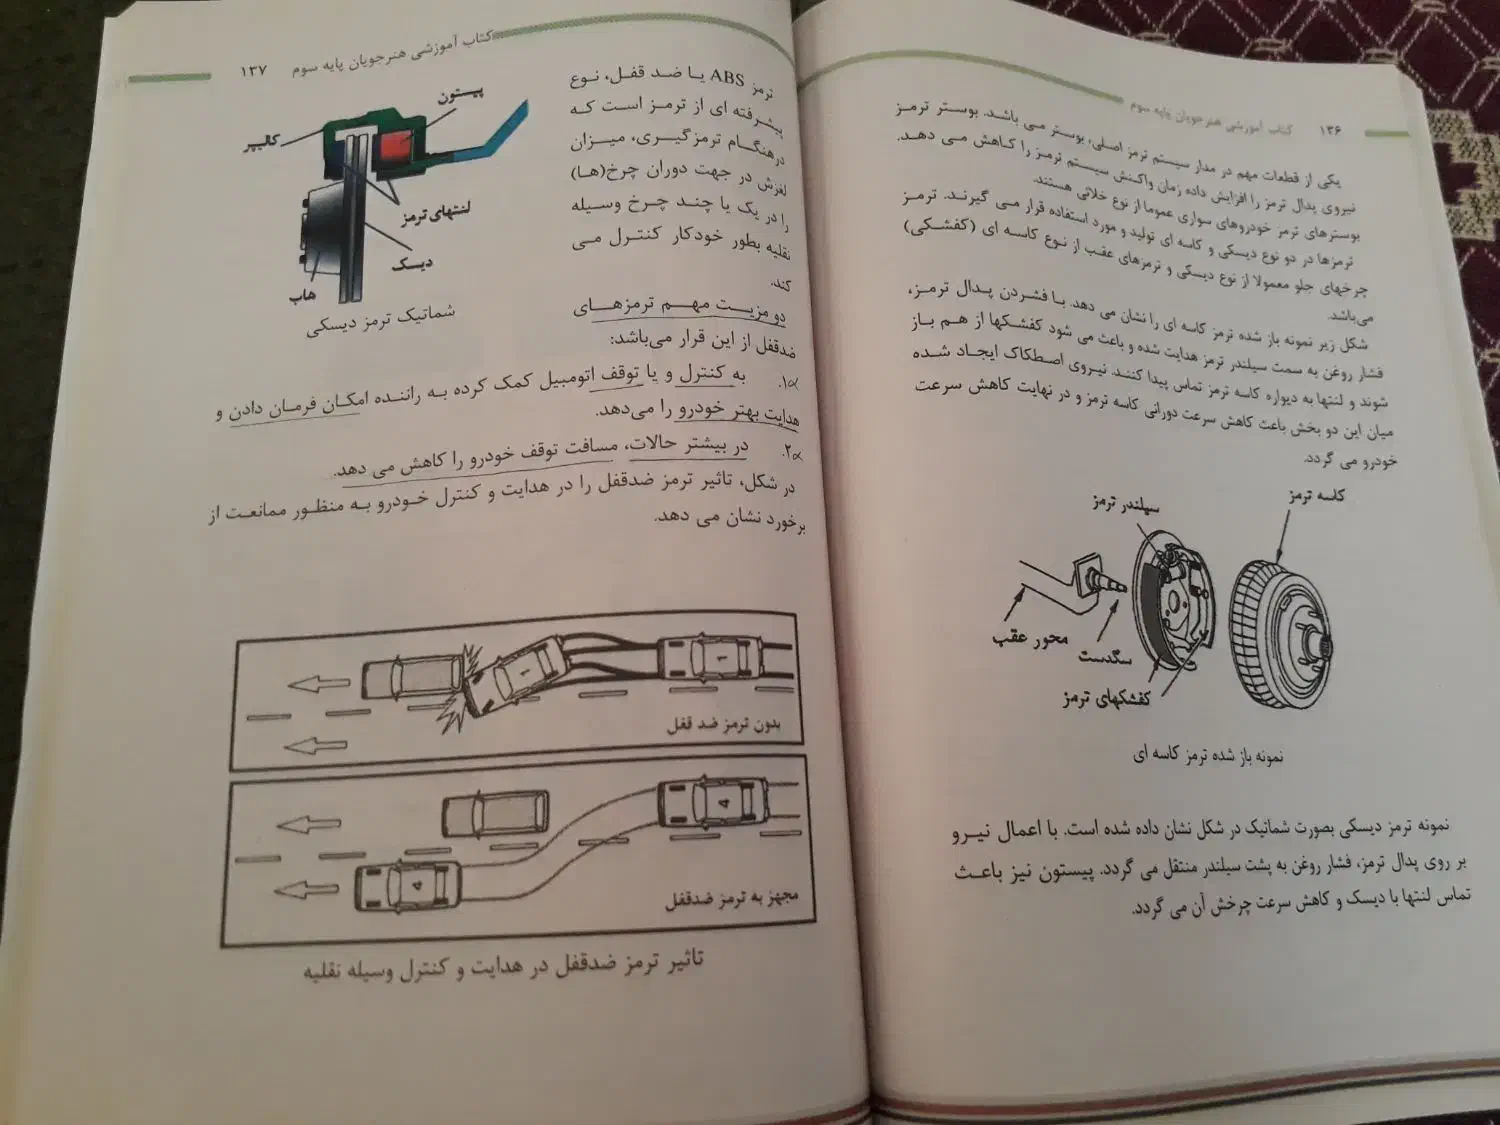 ۱۳۶ کتاب آموزشی هنرجویان پایه سوم
یکی از قطعات مهم در مدار سیستم ترمز اصلی، بوستر می باشد. بوستر ترمز
نیروی پدال ترمز را افزایش داده زمان واکنش سیستم ترمز را کاهش می دهد.
بوسترهای ترمز خودروهای سواری عموما از نوع خلائی هستند.
ترمزها در دو نوع دیسکی و کاسه ای تولید و مورد استفاده قرار می گیرند. ترمز
چرخهای جلو معمولا از نوع دیسکی و ترمزهای عقب از نوع کاسه ای (کفشکی)
می‌باشد.
شکل زیر نمونه باز شده ترمز کاسه ای را نشان می دهد. با فشردن پدال ترمز،
فشار روغن به سمت سیلندر ترمز هدایت شده و باعث می شود کفشکها از هم باز
شوند و لنتها به دیواره کاسه ترمز تماس پیدا کنند. نیروی اصطکاک ایجاد شده
میان این دو بخش باعث کاهش سرعت دورانی کاسه ترمز و در نهایت کاهش سرعت
خودرو می گردد.
کاسه ترمز
سیلندر ترمز
محور عقب
سگدست
کفشکهای ترمز
نمونه باز شده ترمز کاسه ای
نمونه ترمز دیسکی بصورت شماتیک در شکل نشان داده شده است. با اعمال نیرو
بر روی پدال ترمز، فشار روغن به پشت سیلندر منتقل می گردد. پیستون نیز باعث
تماس لنتها با دیسک و کاهش سرعت چرخش آن می گردد.
کتاب آموزشی هنرجویان پایه سوم ۱۳۷
ترمز ABS یا ضد قفل، نوع
پیشرفته ای از ترمز است که
درهنگام ترمزگیری، میزان
لغزش در جهت دوران چرخ(ها)
را در یک یا چند چرخ وسیله
نقلیه بطور خودکار کنترل می
کند.
پیستون
کالیپر
لنتهای ترمز
دیسک
هاب
شماتیک ترمز دیسکی
دو مزیت مهم ترمزهای
ضدقفل از این قرار می‌باشد:
۱. به کنترل و یا توقف اتومبیل کمک کرده به راننده امکان فرمان دادن و
هدایت بهتر خودرو را می‌دهد.
۲. در بیشتر حالات، مسافت توقف خودرو را کاهش می دهد.
در شکل، تاثیر ترمز ضدقفل را در هدایت و کنترل خودرو به منظور ممانعت از
برخورد نشان می دهد.
1
1
بدون ترمز ضد قفل
4
4
مجهز به ترمز ضدقفل
تاثیر ترمز ضدقفل در هدایت و کنترل وسیله نقلیه